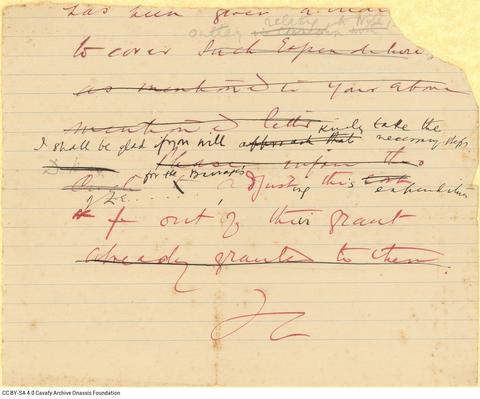 has been given a
relating to
outlay
to cover such Expenditure,
as mentioned in your above
mentioned letter kindly take the
I shall be glad if you will approach that necessary steps
Please inform the
for the Barrages
of £E..... adjusting this cost expenditure
+ out of their grant
already granted to them.
CC BY-SA 4.0 Cavafy Archive Onassis Foundation